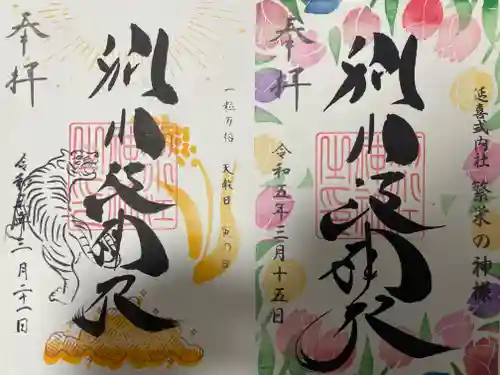 奉拝
別小江神社
一粒万倍 天赦日 寅の日
令和五年三月二十一日
奉拝
別小江神社
延喜式内社 繁栄の神様
令和五年三月十五日